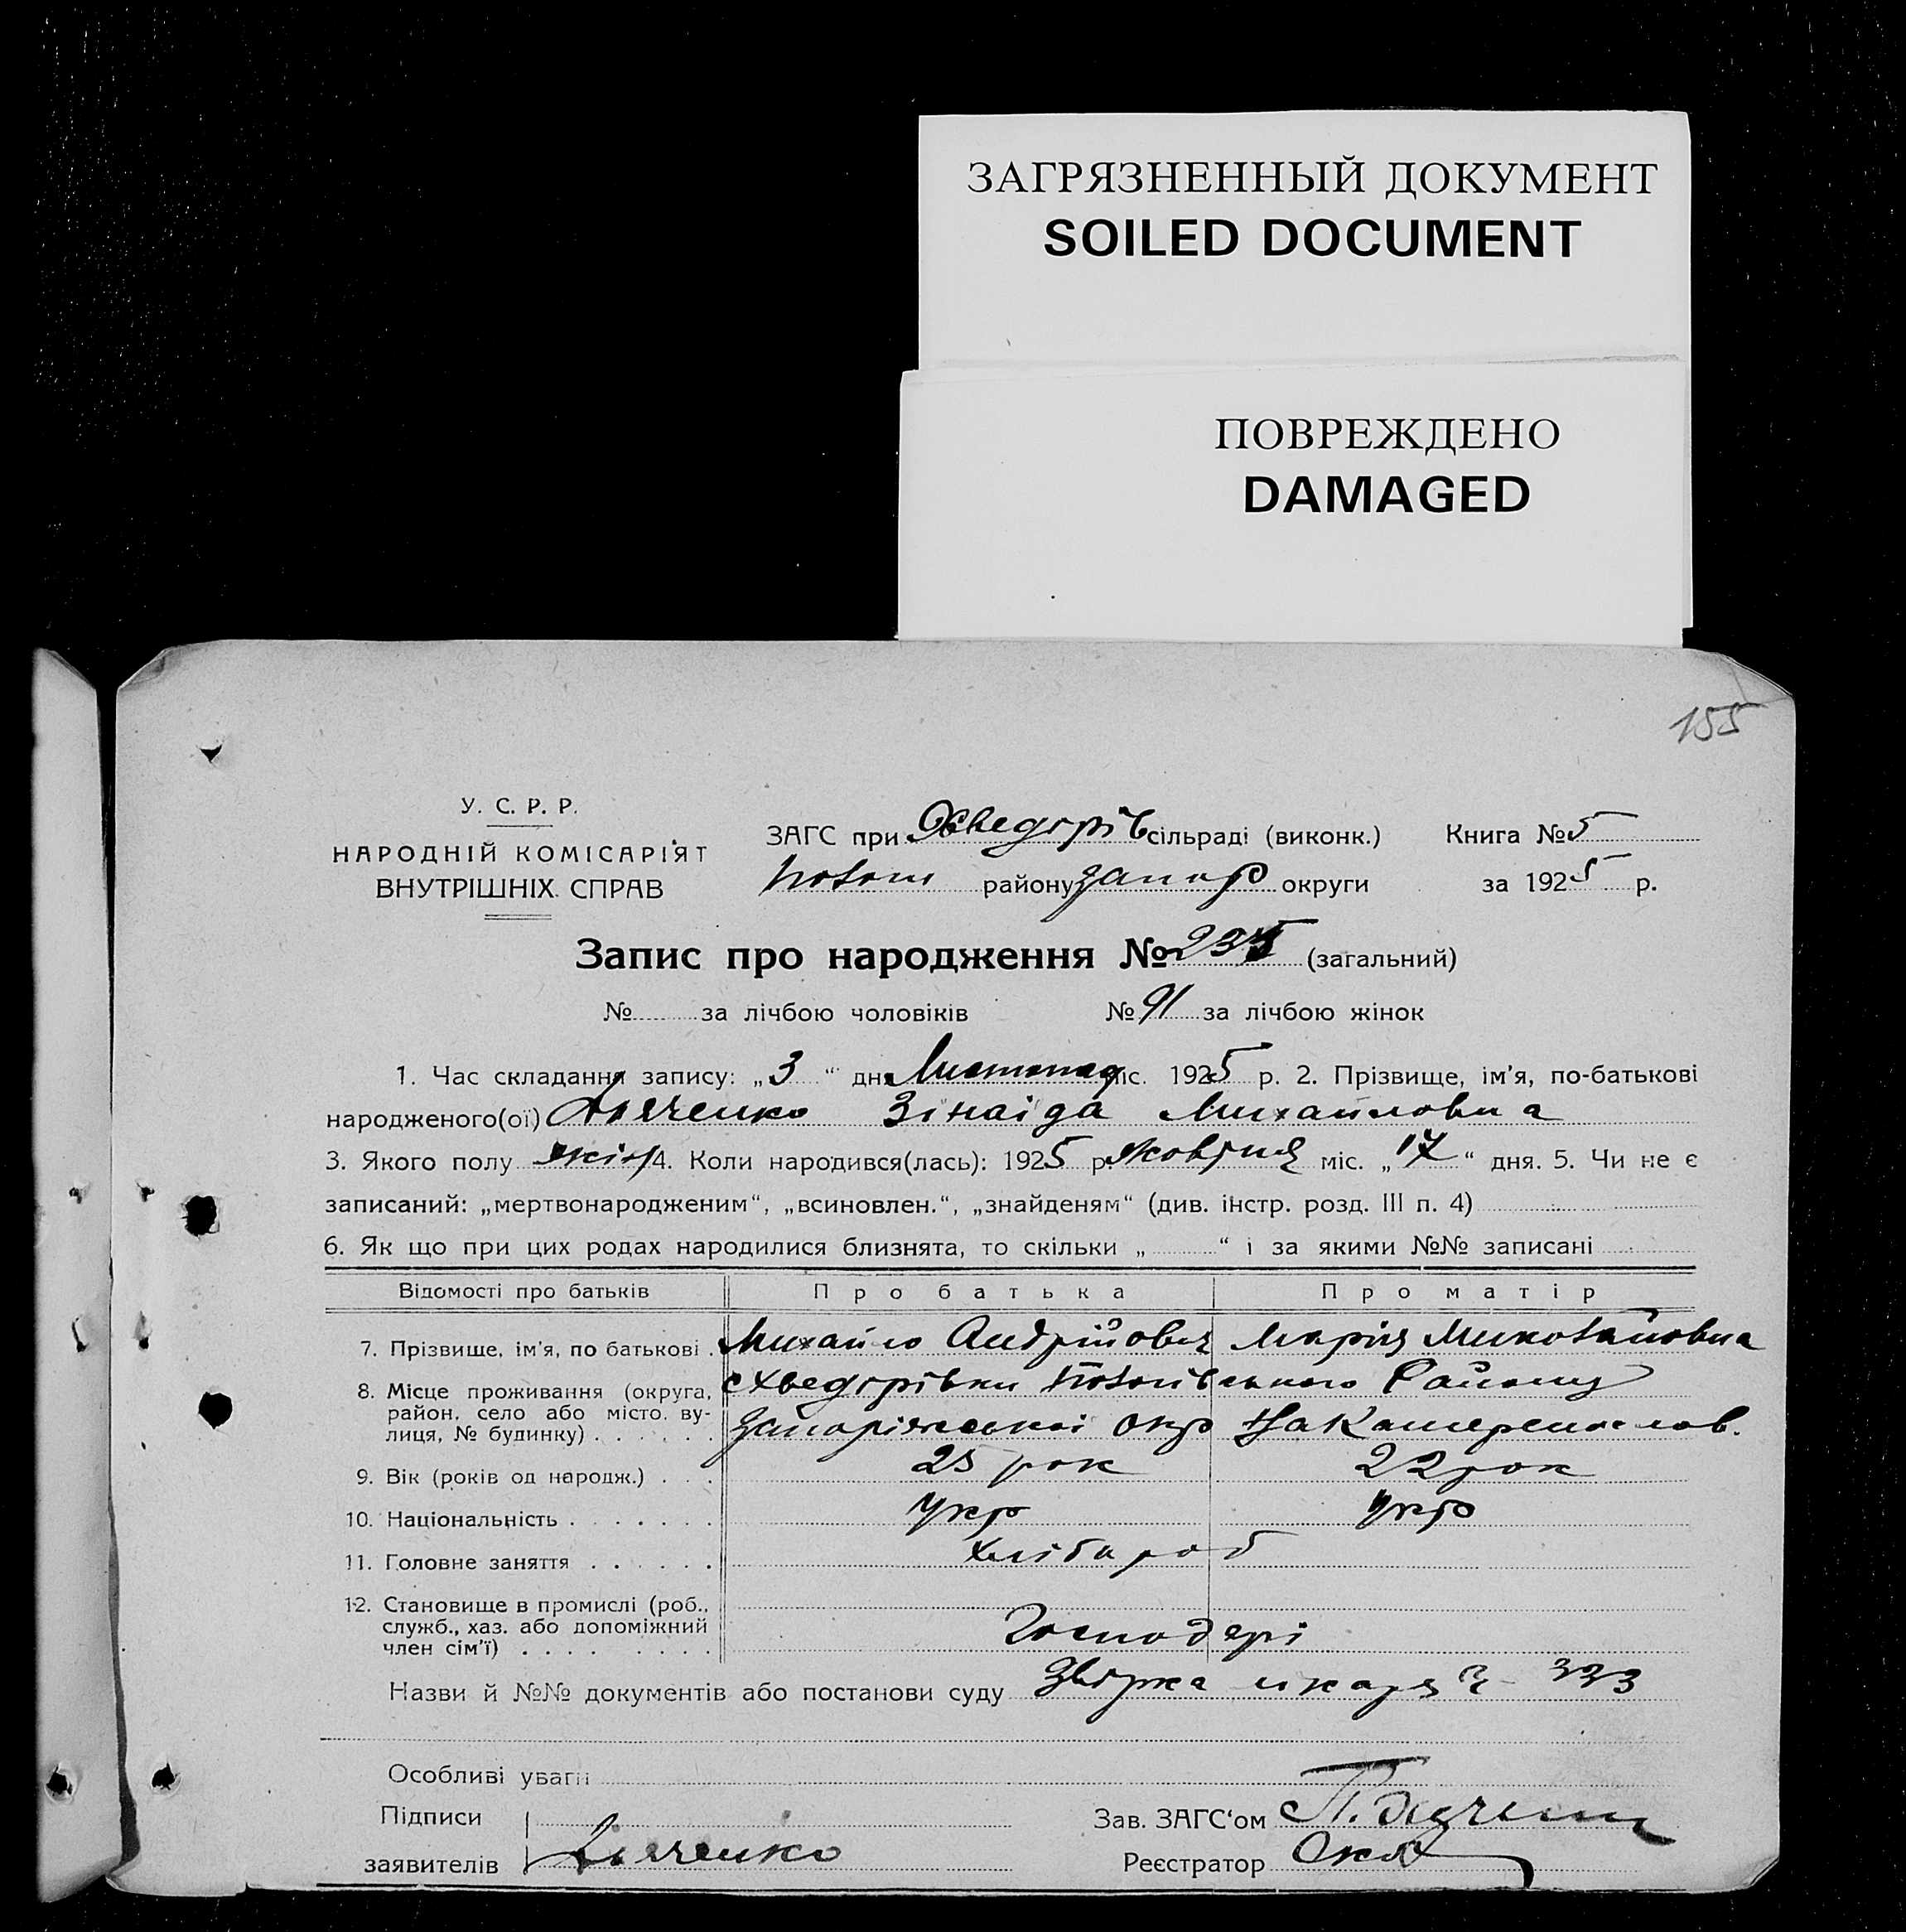 ЗАГРЯЗНЕННЫЙ ДОКУМЕНТ
SOILED DOCUMENT
ПОВРЕЖДЕНО
DAMAGED
155
У. С. Р. Р.
НАРОДНІЙ КОМІСАРІЯТ
ВНУТРІШНІХ СПРАВ
ЗАГС при Хведорів сільраді (виконк.) Книга № 5
району Запор округи за 1925 р.
Запис про народження № 235 (загальний)
№ за лічбою чоловіків № 91 за лічбою жінок
1. Час складання запису: „3“ дня Листопад міс. 1925 р. 2. Прізвище, ім'я, по-батькові
народженого(ої) Дьяченко Зінаіда Михайловна
3. Якого полу жін 4. Коли народився(лась): 1925 р Жовтня міс. „17“ дня. 5. Чи не є
записаний: „мертвонародженим“, „всиновлен.“, „знайденям“ (див. інстр. розд. III п. 4)
6. Як що при цих родах народилися близнята, то скільки „ “ і за якими №№ записані
Відомості про батьків Про батька Про матір
7. Прізвище, ім'я, по батькові . Михайло Андрійович Марія Миколайовна
8. Місце проживання (округа, район, село або місто, вулиця, № будинку) . . . . . . с Хведорівки Району
Запоріжськоі окр на Катеринослав.
9. Вік (років од народж.) . . . 25 рок 22 рок
10. Національність . . . . . . . Укр Укр
11. Головне заняття . . . . . . Хлібороб
12. Становище в промислі (роб., служб., хаз. або допоміжний член сім'ї) . . . . . . . . Господарі
Назви й №№ документів або постанови суду 333
Особливі уваги
Підписи
заявителів Дьяченко
Зав. ЗАГС'ом
Реєстратор